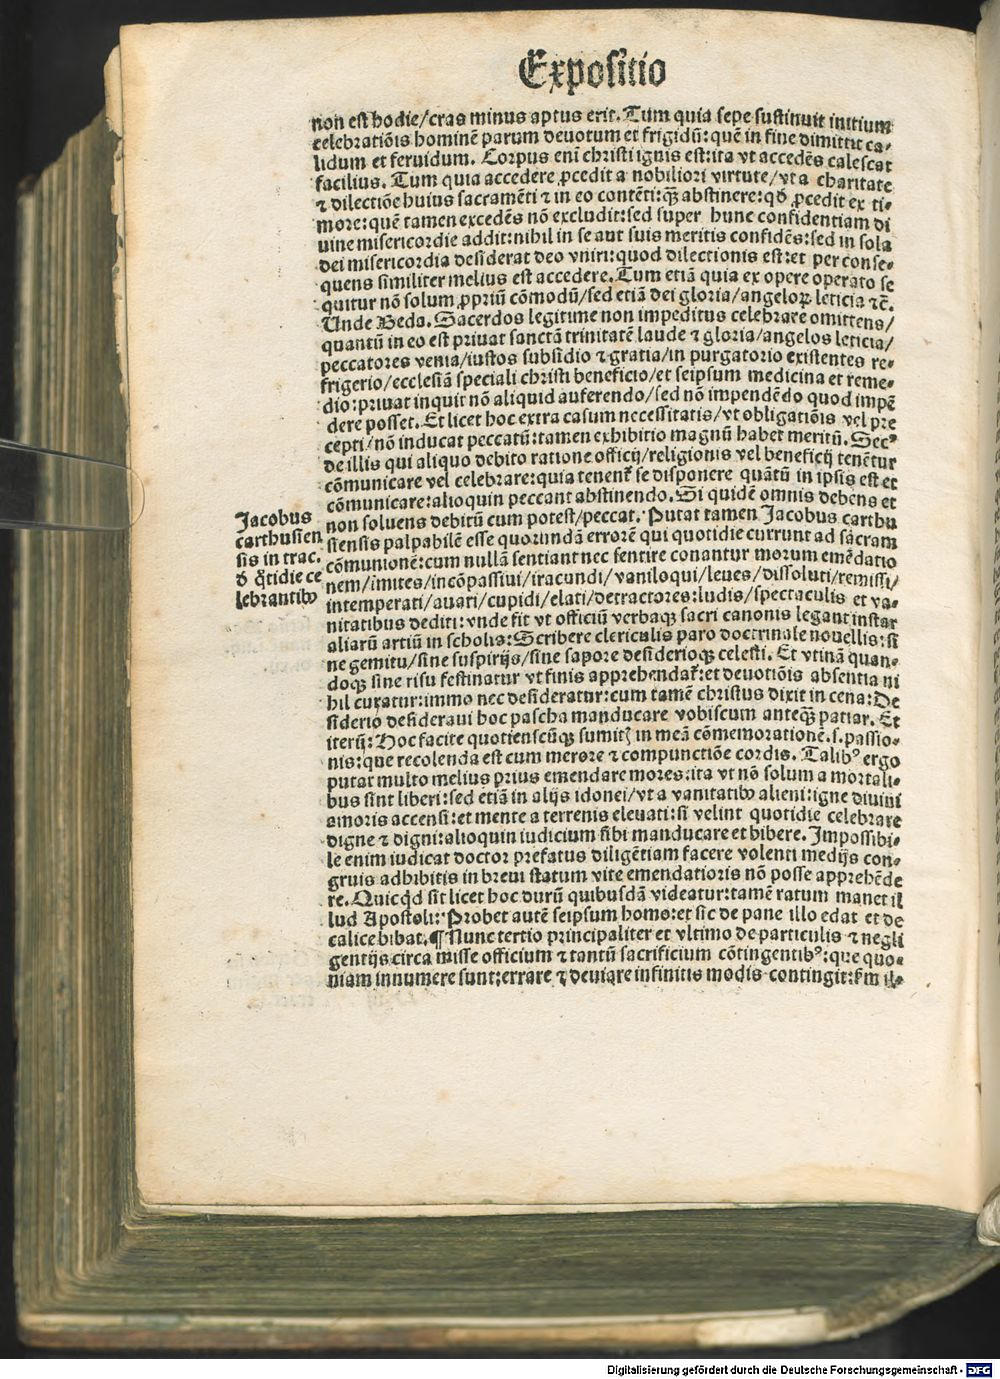 Expositio
non est hodie/cras minus aptus erit. Tum quia sepe sustinuit initium
celebratiõis hominẽ parum deuotum et frigidũ: quẽ in fine dimittit ca⸗
lidum et feruidum. Corpus eni christi ignis est: ita vt accedẽs calescat
facilius. Tum quia accedere ꝓcedit a nobiliori virtute/vt a charitate
⁊ dilectiõe huius sacramẽti ⁊ in eo contẽti: qꝫ abstinere: qđ ꝓcedit ex ti⸗
more: quẽ tamen excedẽs nõ excludit: sed super hunc confidentiam di
uine misericordie addit: nihil in se aut suis meritis confidẽs: sed in sola
dei misericordia desiderat deo vniri: quod dilectionis est: et per conse⸗
quens similiter melius est accedere. Tum etiã quia ex opere operato se
quitur nõ solum ꝓpriũ cõmodũ/sed etiã dei gloria/angeloꝝ leticia ⁊c̃.
Unde Beda. Sacerdos legitime non impeditus celebrare omittens/
quantũ in eo est priuat sanctã trinitatẽ laude ⁊ gloria/angelos leticia/
peccatores venia/iustos subsidio ⁊ gratia/in purgatorio existentes re⸗
frigerio/ecclesiã speciali christi beneficio/et seipsum medicina et reme⸗
dio: priuat inquit nõ aliquid auferendo/sed nõ impendẽdo quod impẽ
dere posset. Et licet hoc extra casum necessitatis/vt obligatiõis vel pre
cepti/nõ inducat peccatũ: tamen exhibitio magnũ habet meritũ. Secꝰ
de illis qui aliquo debito ratione officij/religionis vel beneficij tenẽtur
cõmunicare vel celebrare: quia tenent̃ se disponere quãtũ in ipsis est et
cõmunicare: alioquin peccant abstinendo. Si quidẽ omnis debens et
non soluens debitũ cum potest/peccat. Putat tamen Jacobus carthu
siensis palpabilẽ esse quorundã errorẽ qui quotidie currunt ad sacram
cõmunionẽ: cum nullã sentiant nec sentire conantur morum emẽdatio
nem/imites/incõpassiui/iracundi/vaniloqui/leues/dissoluti/remissi/
intemperati/auari/cupidi/elati/detractores: ludis/spectaculis et va⸗
nitatibus dediti: vnde fit vt officiũ verbaqꝫ sacri canonis legant instar
aliarũ artiũ in scholis: Scribere clericulis paro doctrinale nouellis: si
ne gemitu/sine suspirijs/sine sapore desiderioqꝫ celesti. Et vtinã quan⸗
doqꝫ sine risu festinatur vt finis apprehendat̃: et deuotiõis absentia ni
hil curatur: immo nec desideratur: cum tamẽ christus dixit in cena: De
siderio desideraui hoc pascha manducare vobiscum anteqꝫ patiar. Et
iterũ: Hoc facite quotienscũqꝫ sumitꝭ in meã cõmemorationẽ. s. passio⸗
nis: que recolenda est cum merore ⁊ compunctiõe cordis. Talibꝰ ergo
putat multo melius prius emendare mores: ita vt nõ solum a mortali⸗
bus sint liberi: sed etiã in alijs idonei/vt a vanitatibꝰ alieni: igne diuini
amoris accensi: et mente a terrenis eleuati: si velint quotidie celebrare
digne ⁊ digni: alioquin iudicium sibi manducare et bibere. Impossibi⸗
le enim iudicat doctor prefatus diligẽtiam facere volenti medijs con⸗
gruis adhibitis in breui statum vite emendatioris nõ posse apprehẽde
re. Quicqđ sit licet hoc durũ quibusdã videatur: tamẽ ratum manet il
lud Apostoli: Probet autẽ seipsum homo: et sic de pane illo edat et de
calice bibat. ¶ Nunc tertio principaliter et vltimo de particulis ⁊ negli
gentijs circa misse officium ⁊ tantũ sacrificium cõtingentibꝰ: que quo⸗
niam innumere sunt: errare ⁊ deuiare infinitis modis contingit: s̃m il⸗
Jacobus
carthusien
sis in trac.
ð q̃tidie ce
lebrantibꝰ
Digitalisierung gefördert durch die Deutsche Forschungsgemeinschaft - DFG